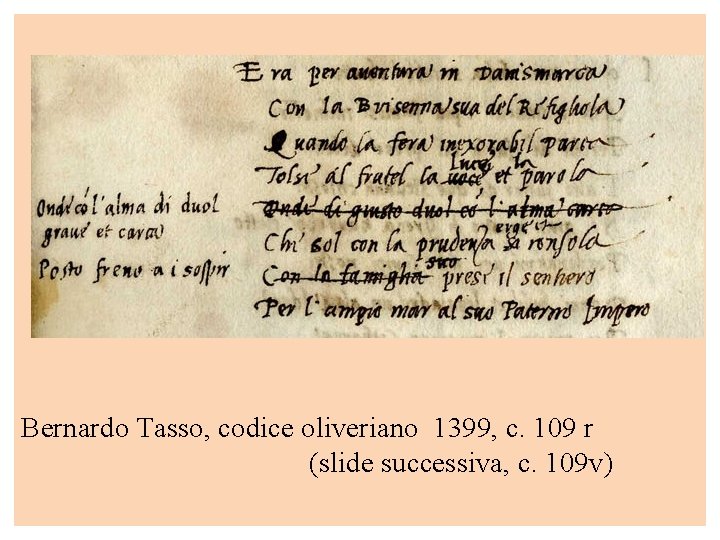 Era per aventura in Danismarca
Con la Brisenna sua del Re figliola
Quando la fera inexorabil parca
Tolse al fratel la voce et parola
luce la
Onde cō l'alma di duol
grave et carca
Onde di giusto duol cō l'alma carca
erge et
Chi sol con la prudenza si consola
Posto freno a i sospir
Con la famiglia prese il senhero
suo
Per l'ampio mar al suo Paterno Impero
Bernardo Tasso, codice oliveriano 1399, c. 109 r
(slide successiva, c. 109v)